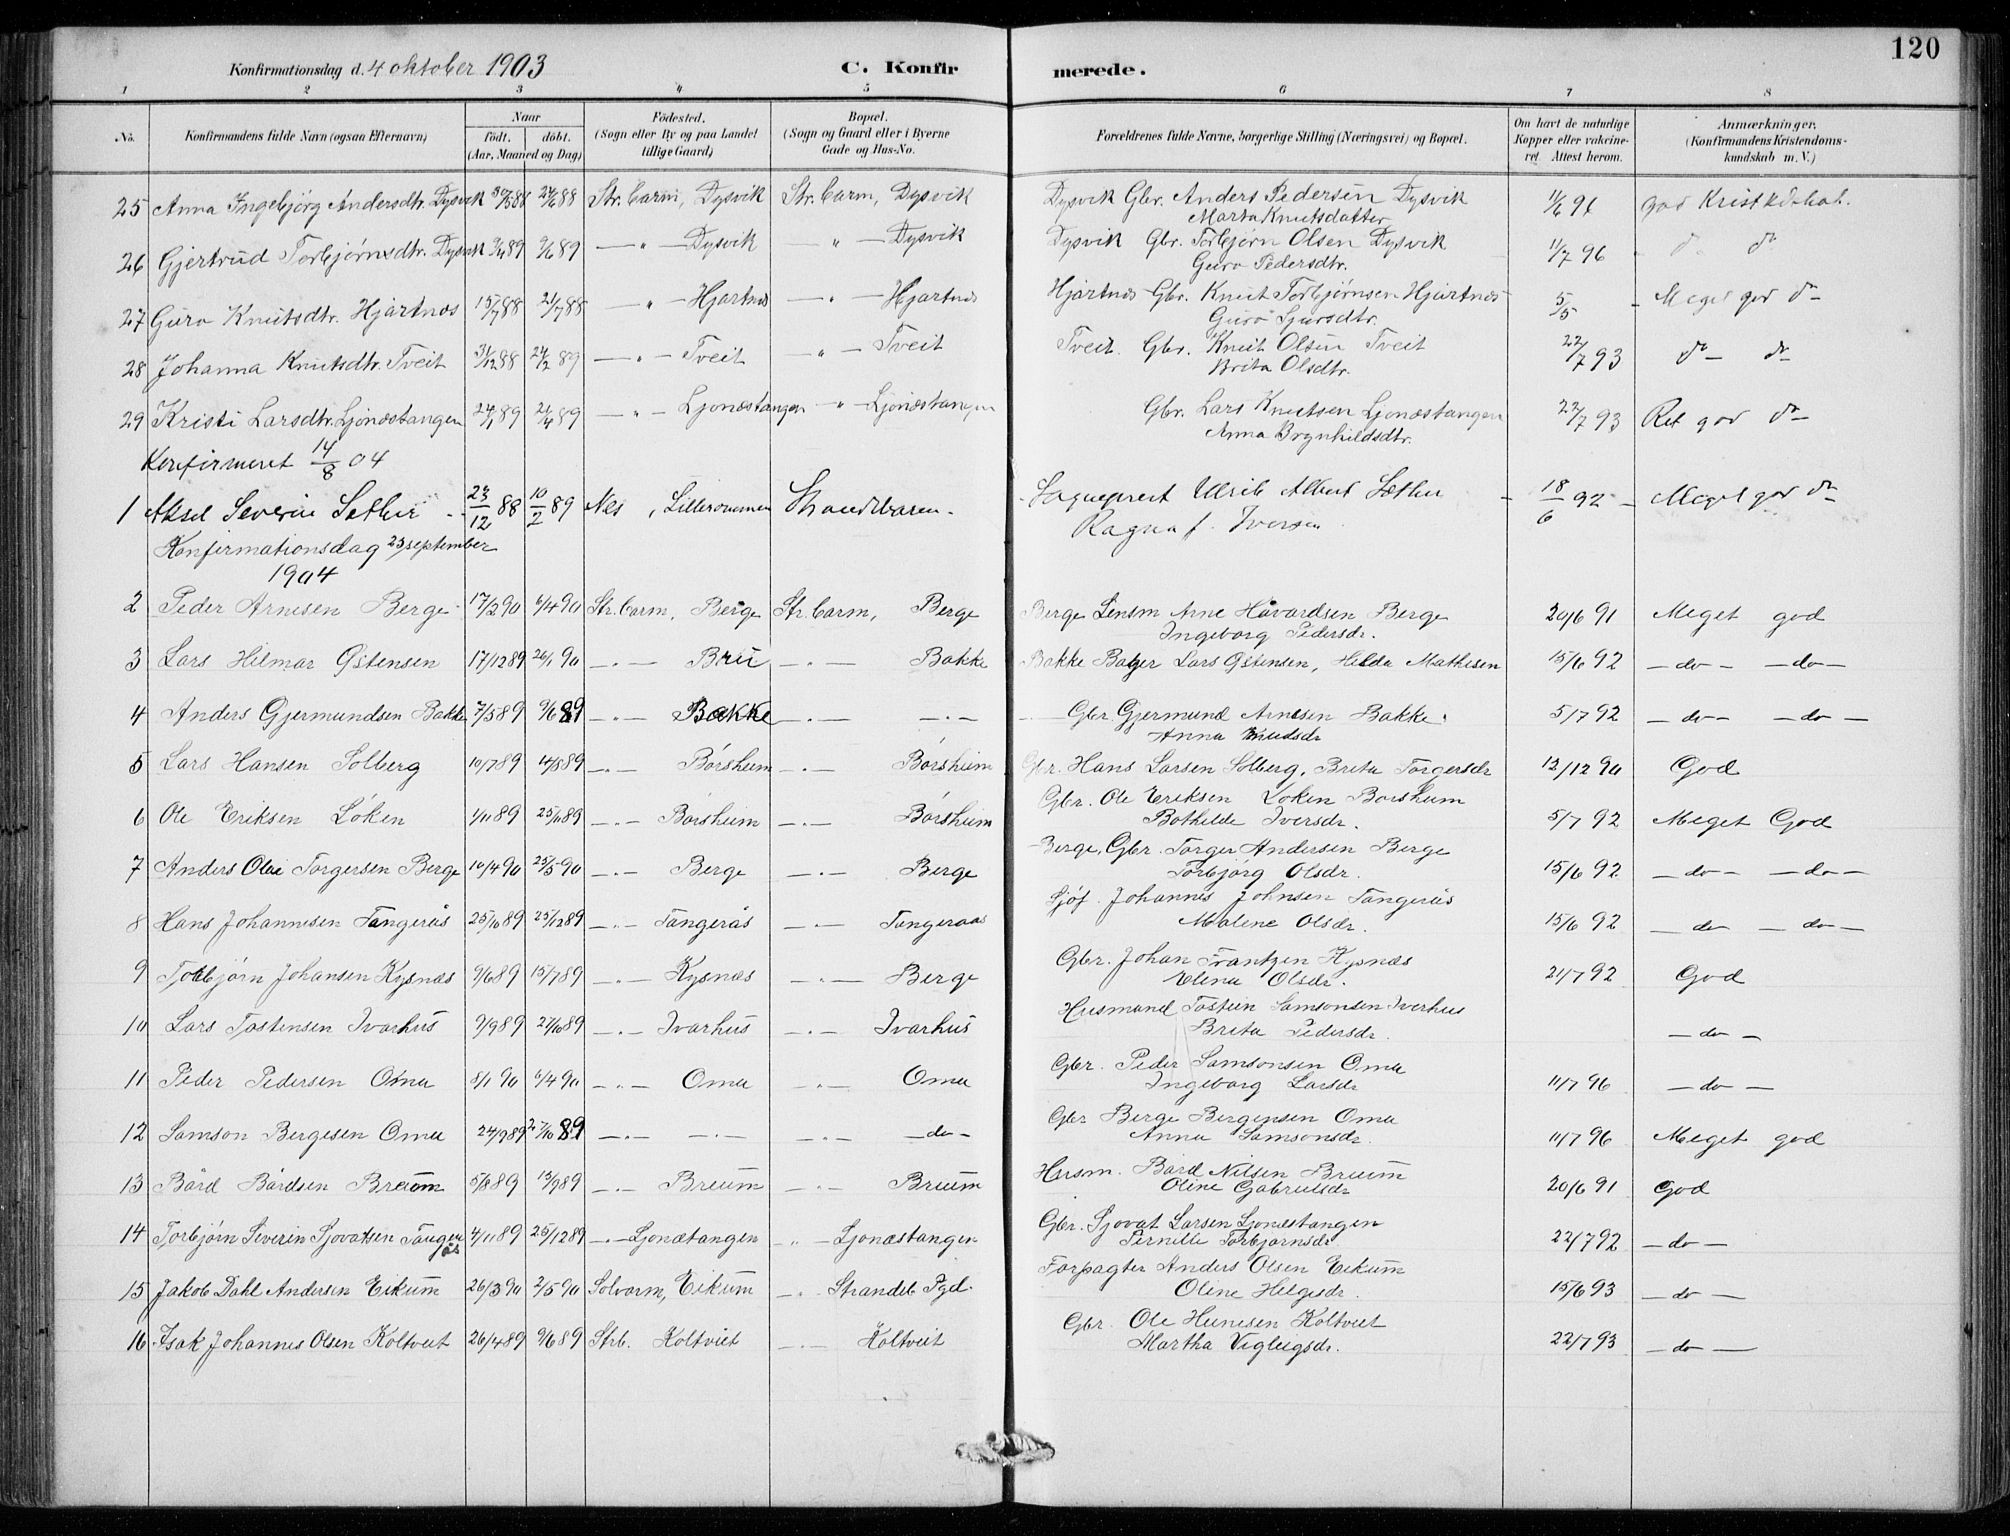 120
Konfirmationsdag d. 4 oktober 1903 C. Konfirmerede.
1 2 3 4 5 6 7 8
No. Konfirmandens fulde Navn (ogsaa Efternavn) Naar født. døbt. (Aar, Maaned og Dag) Fødested. (Sogn eller By og paa Landet tillige Gaard) Bopæl. (Sogn og Gaard eller i Byerne Gade og Hus-No. Forældrenes fulde Navne, borgerlige Stilling (Næringsvei) og Bopæl. Om havt de naturlige Kopper eller vakcineret. Attest herom. Anmærkninger. (Konfirmandens Kristendomskundskab m. V.)
25 Anna Ingebjørg Andersdtr. Dysvik 88 24/6 88 Str. barm, Dysvik Str. barm, Dysvik Dysvik Gbr. Anders Pedersen Dysvik 11/6 96 god
Marta Knutsdatter
26 Gjertrud Torbjørnsdtr. Dysvik 3/4 89 9/6 89 — " — Dysvik — " — Dysvik Dysvik Gbr. Torbjørn Olsen Dysvik 11/7 96 do do
Guro Pedersdtr.
27 Guro Knutsdtr. Hjartnes 15/7 88 21/7 88 — " — Hjartnes — " — Hjartnes Hjartnes Gbr. Knut Torbjørnsen Hjartnes 5/5 - Meget god do
Guro Sjursdtr.
28 Johanna Knutsdtr. Tveit 31/12 88 24/2 89 — " — Tveit — " — Tveit Tveit. Gbr. Knut Olsen Tveit 22/7 93 do do
Brita Olsdtr.
29 Kristi Larsdtr. Ljonæstangen 24/1 89 21/4 89 — " — Ljonæstangen — " — Ljonæstangen Gbr. Lars Knutsen Ljonæstangen 22/7 93 Ret god do
Anna Brynhildsdtr.
Konfirmeret 14/8 04
1 Aksel Severin Sæther 23/12 88 10/2 89 Nes, Strandebarm. Sogneprest Ulrik Albert Sæther 18/6 92 - Meget god do
Ragna f. Iversen
Konfirmationsdag 25 september
1904
2 Peder Arnesen Berge 17/2 90 6/4 90 Str. barm, Berge Str. barm, Berge Berge Lensm Arne Håvardsen Berge 20/6 91 Meget god
Ingeborg Pedersdr.
3 Lars Hilmar Østensen 17/12 89 26/1 90 — " — Bru — " — Bakke Bakke Lars Østensen, Hilda Mathisen 15/6 92 — do — — do —
4 Anders Gjermundsen Bakke 7/5 89 9/6 89 — " — Bakke — " — — " — Gbr. Gjermund Arnesen Bakke. 5/7 92 — do — — do —
Anna Knutsdr
5 Lars Hansen Solberg 10/7 89 14/8 89 — " — Børsheim — " — Børsheim Gbr. Hans Larsen Solberg, Brita Torgersdr 12/12 90 God
6 Ole Eriksen Løken 1/11 89 25/11 89 — " — Børsheim — " — Børsheim Gbr. Ole Eriksen Løken Børsheim 5/7 92 Meget God
Bothilde Iversdr.
7 Anders Olai Torgersen Berge 10/4 90 25/5 90 — " — Berge — " — Berge Berge, Gbr. Torger Andersen Berge 15/6 92 — do — — do —
Torbjørg Olsdr.
8 Hans Johannesen Tangerås 25/10 89 25/12 89 — " — Tangerås — " — Tangeraas Sjøf. Johannes Johnsen Tangerås 15/6 92 — do — do —
Malene Olsdr.
9 Torbjørn Johansen Kysnæs 9/6 89 15/7 89 — " — Kysnæs — " — Berge Gbr. Johan Frantzen Kysnæs 21/7 92 God
Elena Olsdr.
10 Lars Tostensen Ivarhus 9/9 89 27/10 89 — " — Ivarhus — " — Ivarhus Husmand Tostein Samsonsen Iverhus — do —
Brita Pedersdr.
11 Peder Pedersen Oma 8/1 90 6/4 90 — " — Oma — " — Oma Gbr. Peder Samsonsen Oma 11/7 96 — do —
Ingeborg Larsdr
12 Samson Bergesen Oma 24/9 89 27/10 89 — " — — " — — " — — do — Gbr Berge Bergensen Oma 11/7 96 Meget god
Anna Samsonsdr.
13 Bård Bårdsen Breum 5/8 89 15/9 89 — " — Breum — " — Breum Husm. Bård Nilsen Breum 20/6 91 God
Oline Gabrielsdr
14 Torbjørn Severin Sjovatsen Tangerås 4/11 89 25/12 89 — " — Ljonætangen — " — Ljonæstangen Gbr. Sjovat Larsen Ljonæstangen 22/7 92 — do —
Pernille Torbjørnsdr
15 Jakob Dahl Andersen Eikum 26/3 90 2/5 90 Solvorm, Eikum — " — Strandeb Pgd. Forpagter Anders Olsen Eikum 15/6 93 — do —
Oline Helgesdr.
16 Isak Johannes Olsen Koltveit 26/4 89 9/6 89 Strb. Koltveit — " — Koltveit Gbr. Ole Hunesen Koltveit 22/7 93 — do —
Martha Vigleigsdr.